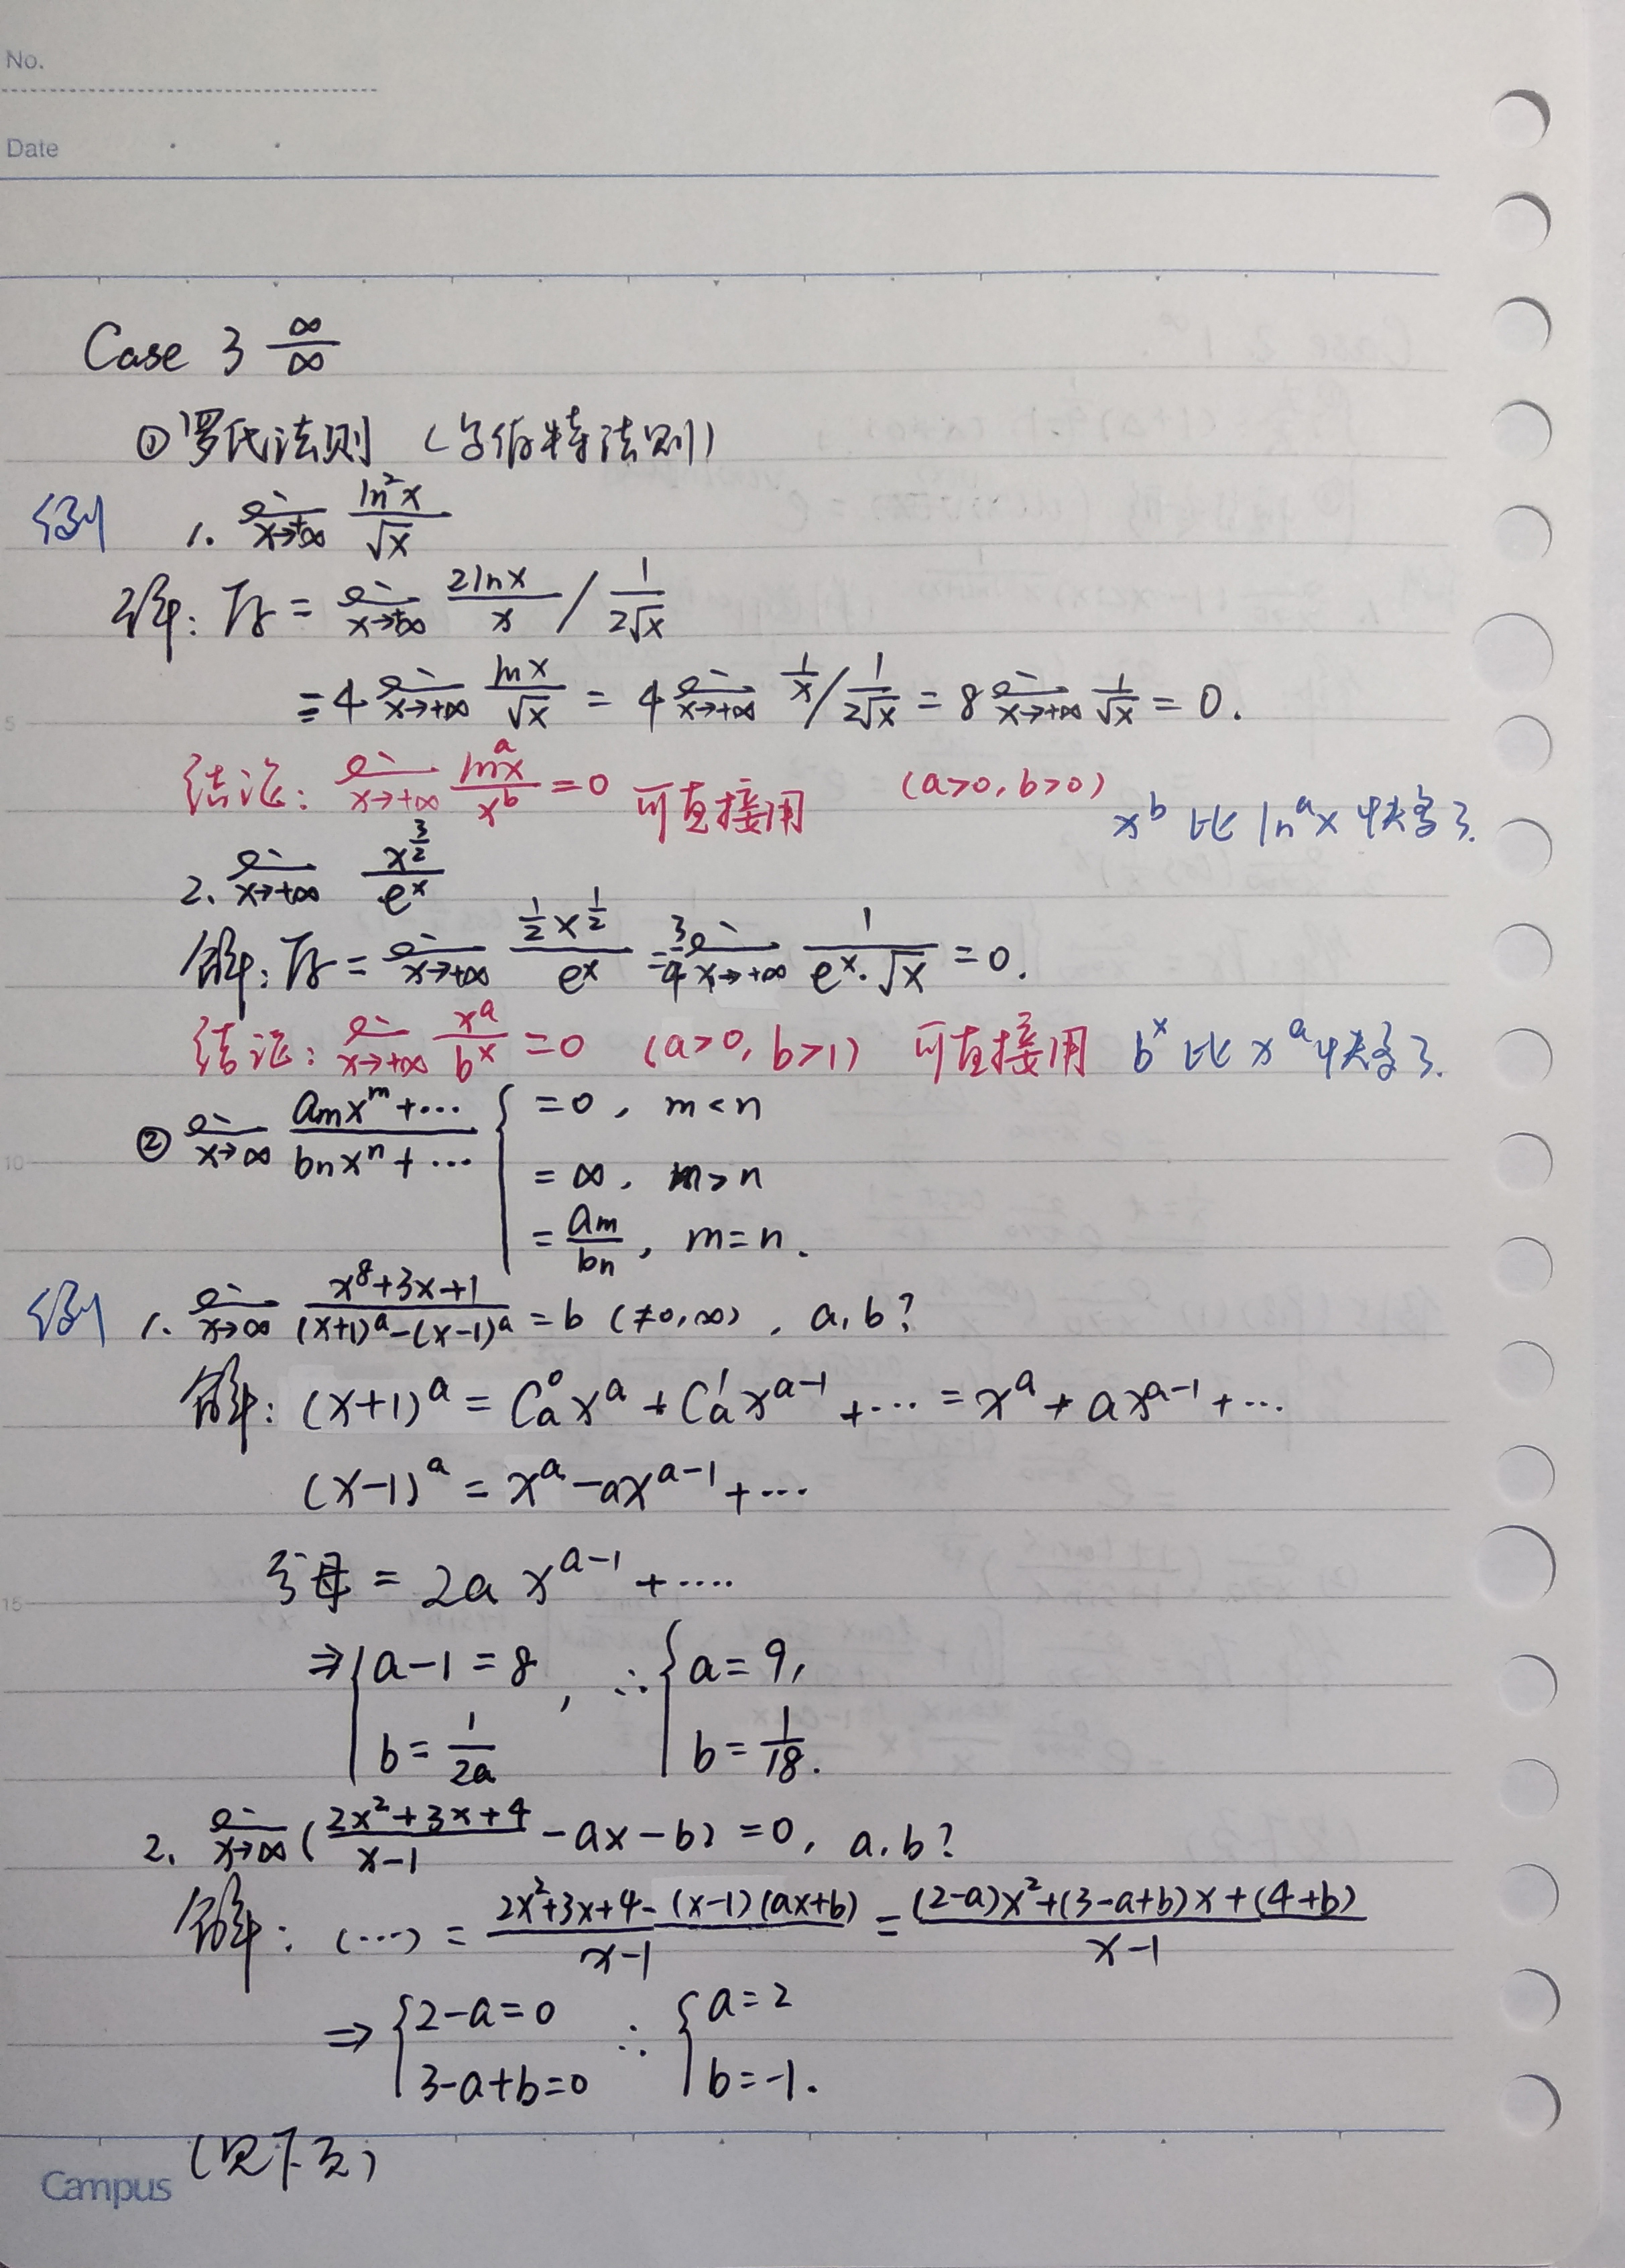 No.
Date
Case 3 ∞/∞
① 罗氏法则 (洛伯特法则)
例 1. lim_{x→+∞} ln²x/√x
解: 原 = lim_{x→+∞} 2lnx/x / 1/(2√x)
= 4 lim_{x→+∞} lnx/√x = 4 lim_{x→+∞} 1/x / 1/(2√x) = 8 lim_{x→+∞} 1/√x = 0.
结论: lim_{x→+∞} ln^a x/x^b = 0 可直接用 (a>0, b>0) x^b 比 ln^a x 快多了.
2. lim_{x→+∞} x^{3/2}/e^x
解: 原 = lim_{x→+∞} (1/2 x^{1/2})/e^x = 3/4 lim_{x→+∞} 1/(e^x·√x) = 0.
结论: lim_{x→+∞} x^a/b^x = 0 (a>0, b>1) 可直接用 b^x 比 x^a 快多了.
② lim_{x→∞} (a_m x^m+⋯)/(b_n x^n+⋯) { =0, m<n
=∞, m>n
= a_m/b_n, m=n.
例 1. lim_{x→∞} (x^8+3x+1)/((x+1)^a-(x-1)^a) = b (≠0,∞), a,b?
解: (x+1)^a = C_a^0 x^a + C_a^1 x^{a-1} +⋯ = x^a + ax^{a-1} +⋯
(x-1)^a = x^a - ax^{a-1} +⋯
分母 = 2a x^{a-1} +⋯
⇒ { a-1=8, ∴ { a=9,
b=1/(2a) b=1/18.
2. lim_{x→∞} ((2x²+3x+4)/(x-1) -ax-b) = 0, a,b?
解: (⋯) = (2x²+3x+4-(x-1)(ax+b))/(x-1) = ((2-a)x²+(3-a+b)x+(4+b))/(x-1)
⇒ { 2-a=0 ∴ { a=2
3-a+b=0 b=-1.
(见下页)
Campus
5
10
15